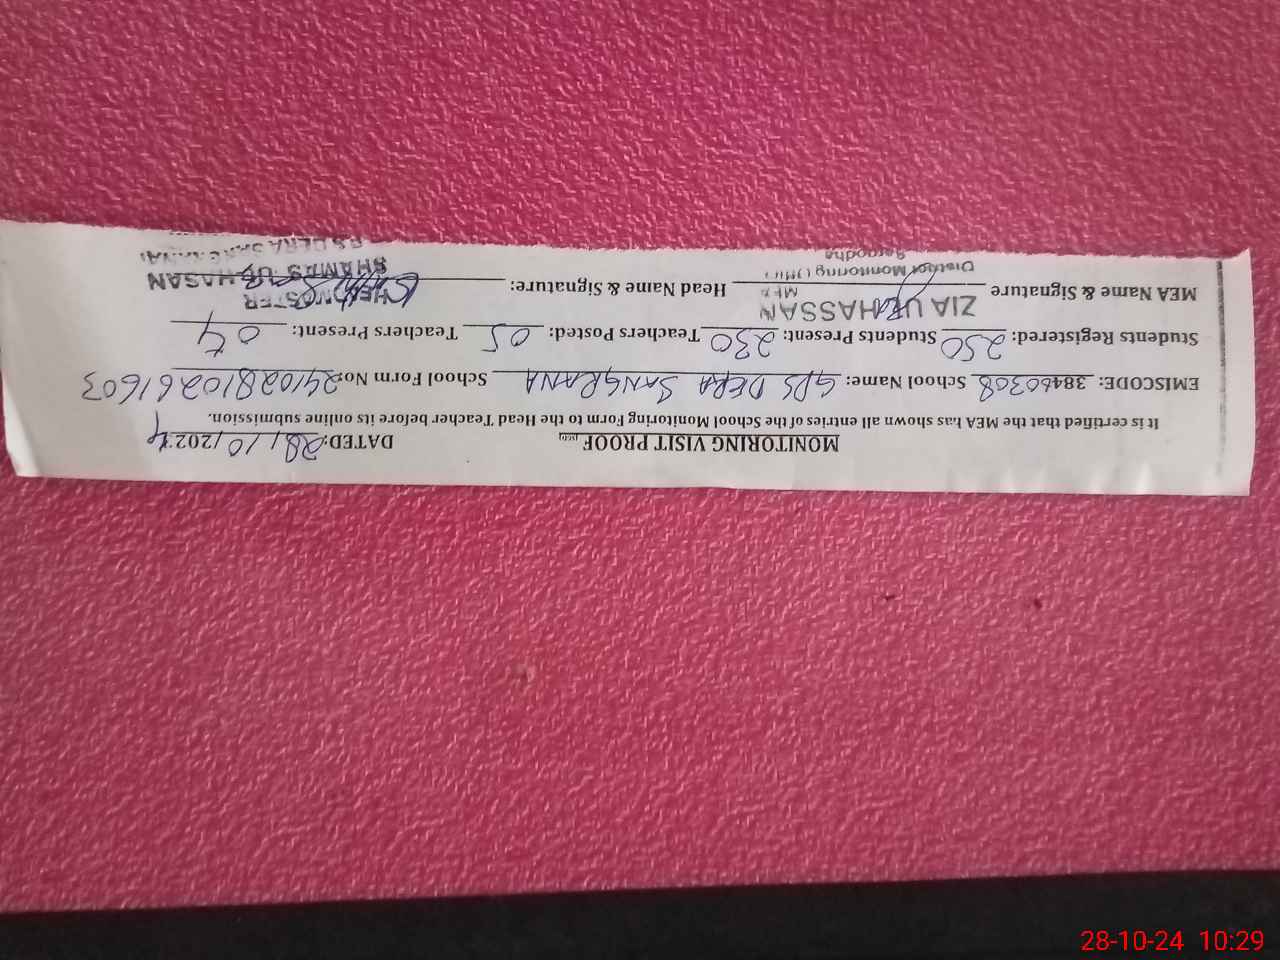 MONITORING VISIT PROOF DATED: 28/10/2024
It is certified that the MEA has shown all entries of the School Monitoring Form to the Head Teacher before its online submission.
EMISCODE: 38460308 School Name: GPS DERA SANGRANA School Form No: 24102810261603
Students Registered: 250 Students Present: 230 Teachers Posted: 05 Teachers Present: 04
MEA Name & Signature Head Name & Signature:
ZIA UL HASSAN
MEA
District Monitoring
Sargodha
HEADMASTER
SHAMS UL HASAN
DERA SANGRANA
28-10-24 10:29